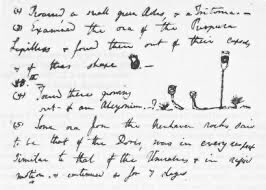 (2) Procured a small green Aeolis & a Tritonia.
(3) Examined the ova of the Purpura
Lapillus & found them out of their capsules
& of this shape
(4) Found these growing
out of an Alcyonium
(5) Some ova from the Newhaven rocks said
to be that of the Doris, was in every respect
Similar to that of the Univalves & in rapid
motion & continued so for 7 days